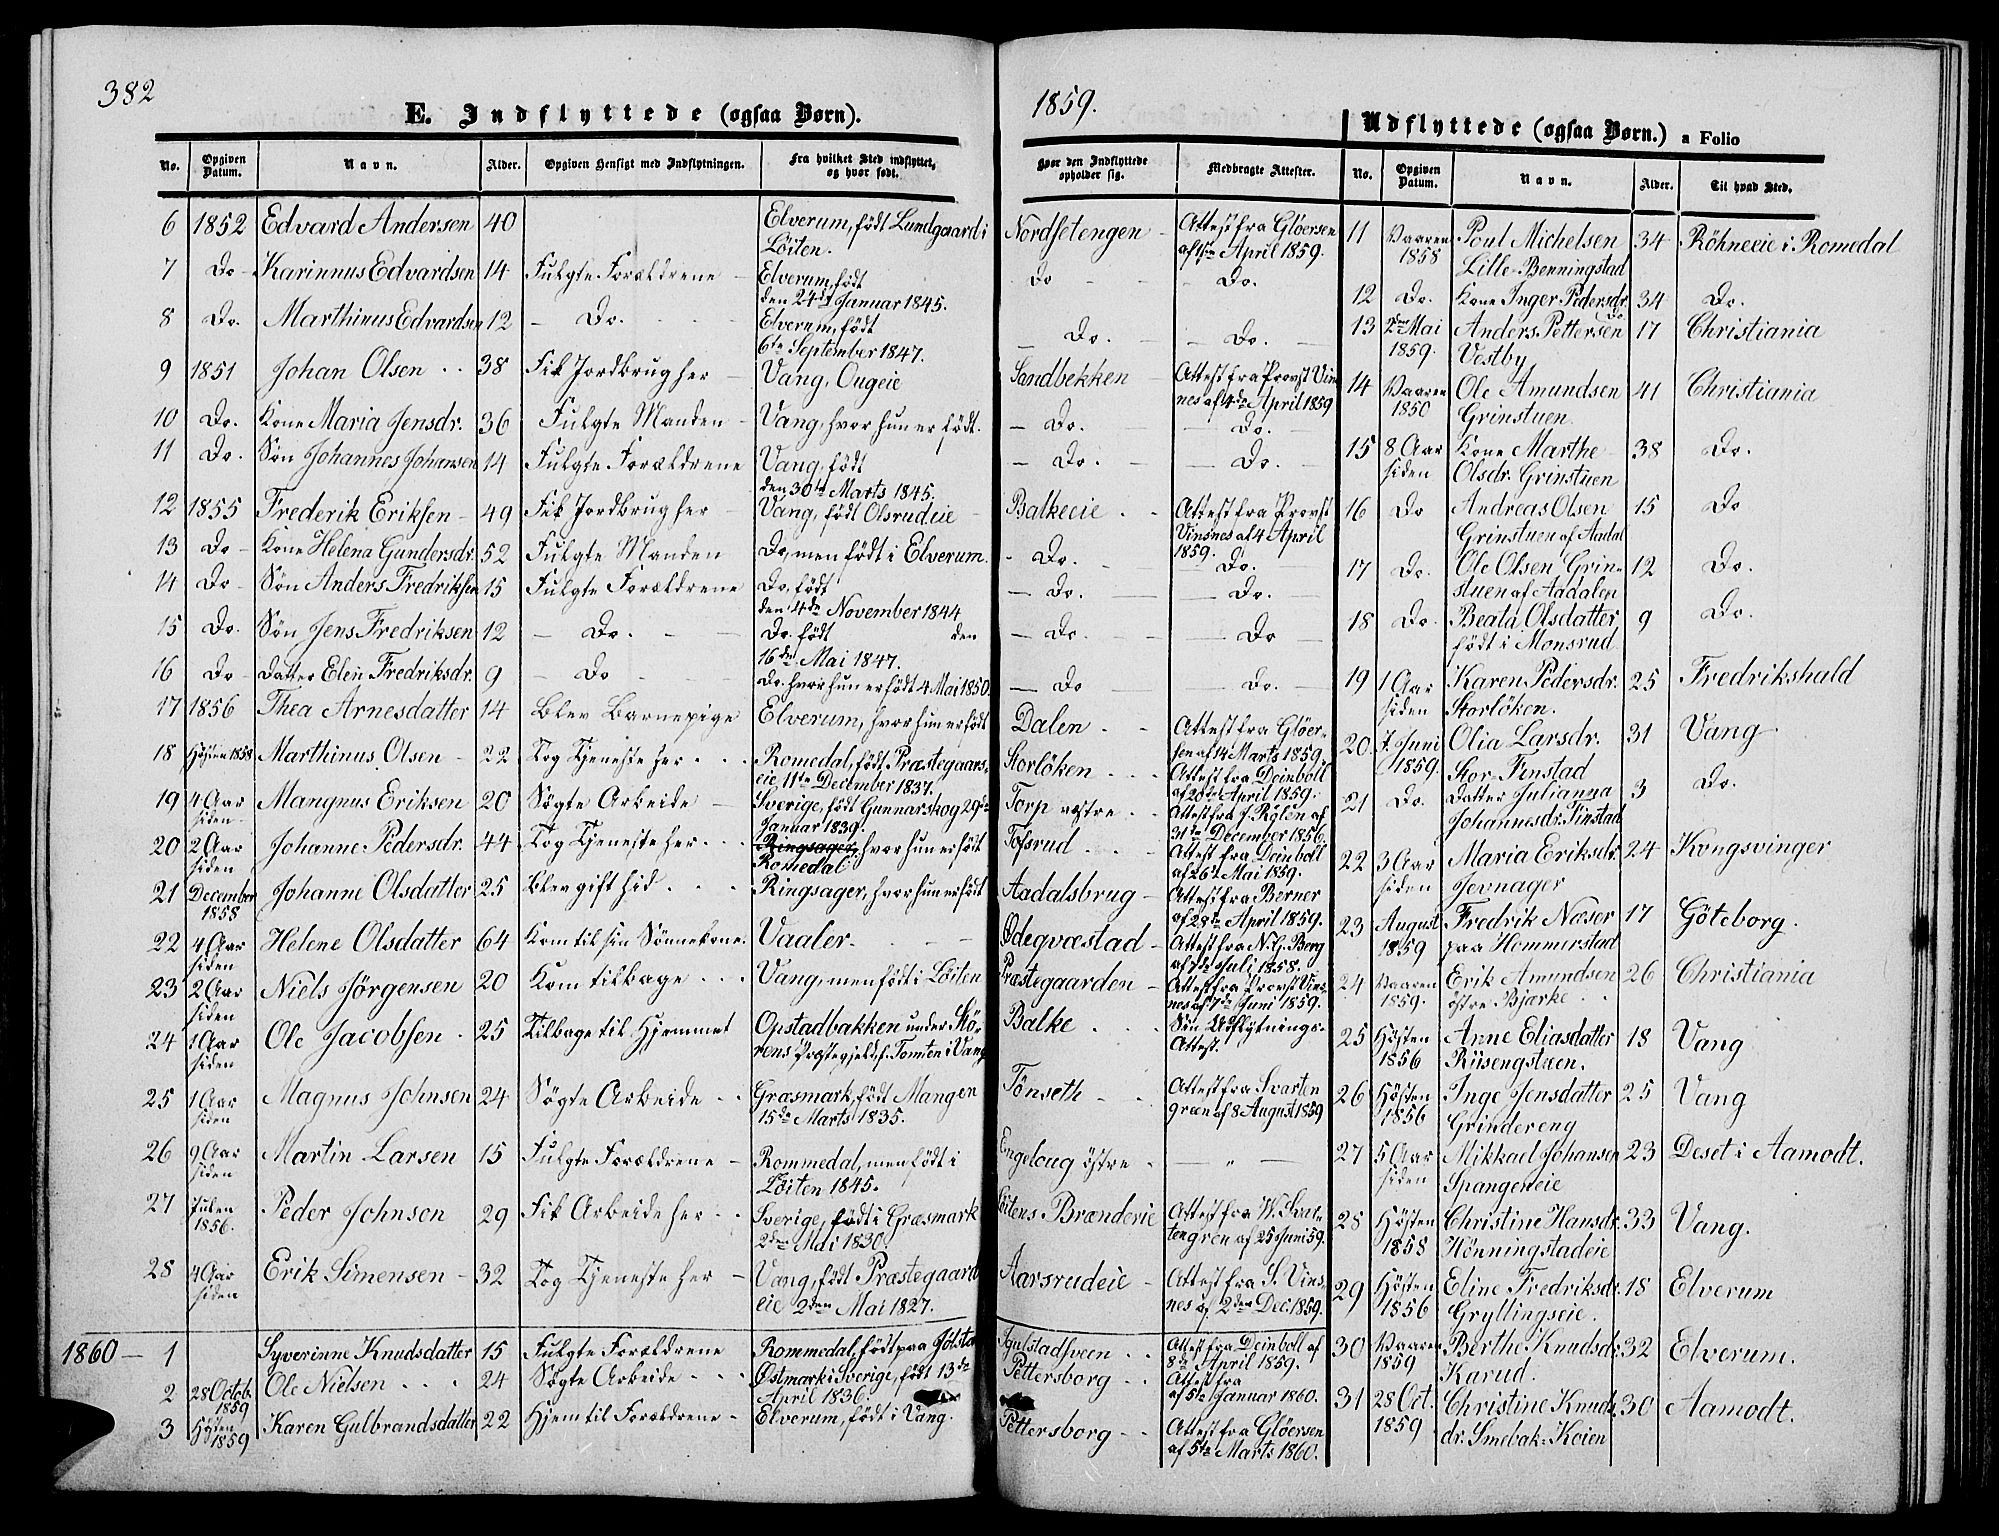 382
E. Indflyttede (ogsaa Børn).
No. Opgiven Datum. Navn. Alder. Opgiven Hensigt med Indflytningen. Fra hvilket Sted indflyttet, og hvor født.
6 1852 Edvard Andersen 40 Elverum, født Lundgaard i
Löiten.
7 Do - Karinnus Edvardsen 14 Fulgte Forældrene - Elverum, født
den 24de Januar 1845.
8 Do. Marthinus Edvardsen 12 - Do. - Elverum, født
6te September 1847.
9 1851 Johan Olsen 38 Fik Jordbrug her - Vang, Ougeie
10 Do. Kone Maria Jensdr. 36 Fulgte Manden - Vang, hvor hun er født.
11 Do. Søn Johannes Johansen 14 Fulgte Forældrene Vang, født
den 30te Marts 1845.
12 1855 Frederik Eriksen - 49 Fik Jordbrug her - Vang, født Olsrudeie
13 Do - Kone Helena Gundersdr. 52 Fulgte Manden Do, men født i Elverum.
14 Do - Søn Anders Fredriksen 15 Fulgte Forældrene Do, født
den 4de November 1844
15 Do. Søn Jens Fredriksen 12 - Do. - Do. født den
16de Mai 1847.
16 Do - Datter Elen Fredriksdr. 9 - Do - Do. hvor hun er født 4 Mai 1850.
17 1856 Thea Arnesdatter 14 Blev Barnepige Elverum, hvor hun er født
18 Hösten 1858 Marthinus Olsen - 22 Tog Tjeneste her Romedal, født Præstegaars-
eie 11te December 1837.
19 4 Aar siden Mangnus Eriksen 20 Søgte Arbeide - Sverige, født Gunnarskog 29de
Januar 1839.
20 2 Aar siden Johanne Pedersdr. 44 Tog Tjeneste her Ringsager, hvor hun er født
Romedal
21 December 1858 Johanne Olsdatter 25 Blev gift hid Ringsager, hvor hun er født
22 4 Aar siden Helene Olsdatter 64 Kom til sin Sønnekone. Vaaler.
23 2 Aar siden Niels Jörgensen 20 Kom tilbage Vang, men født i Löiten
24 1 Aar siden Ole Jacobsen 25 Tilbage til Hjemmet Opstadbakken under Stö-
rens Præstegjeld, f. Tomten i Vang
25 1 Aar siden Magnus Johnsen 24 Søgte Arbeide Græsmark, født Mangen
15de Marts 1835.
26 9 Aar siden Martin Larsen 15 Fulgte Forældrene - Rommedal, men født i
Löiten 1845.
27 Julen 1856. Peder Johnsen 29 Fik Arbeide her Sverige, født i Græsmark
2den Mai 1830
28 4 Aar siden Erik Simensen - 32 Tog Tjeneste her - Vang, født Præstegaard
eie 2den Mai 1827.
1860 - 1 Syverinne Knudsdatter 15 Fulgte Forældrene Rommedal, født paa Jölsta
2 28 Octob. 1859 Ole Nielsen 24 Søgte Arbeide Östmark i Sverige, født 13de
April 1836.
3 Hösten 1859 Karen Gulbrandsdatter 22 Hjem til Forældrene - Elverum, født i Vang.
1859.
Hvor den Indflyttede opholder sig. Medbragte Attester.
Nordsetengen - Attest fra Glöersen
af 1ste April 1859.
Do - Do.
Do. - Do.
Sandbekken - Attest fra Provst Vins-
nes af 4de April 1859
- Do. - Do.
- Do. - Do.
Balkeeie Attest fra Provst
Vinsnes af 4 April
1859.
- Do. - Do.
- Do. - Do.
- Do. - Do
- Do - Do.
Dalen Attest fra Glöer-
sen af 14 Marts 1859.
Storlöken Attest fra Deinboll
af 20de April 1859.
Torp vestre Attest fra J. Rylén af
31te December 1856.
Tofsrud Attest fra Deinboll
af 26de Mai 1859.
Aadalsbrug - Attest fra Berner
af 28de April 1859.
Ödegvæstad - Attest fra N. G. Berg
af 7de Juli 1858.
Præstegaarden - Attest fra Provst Vins-
nes af 7de Juni 1859.
Balke Søn Udflytnings-
Attest.
Tönseth Attest fra Svarten
gren af 8 August 1859
Engeloug östre - " -
Löitens Brænderie Attest fra W. Svar-
tengren af 25 Juni 59.
Aarsrudeie - Attest fra S. Vins-
nes af 2den Dec. 1859.
Igulstadsveen Attest fra Deinboll af
8de April 1859.
Pettersborg Attest fra
af 5te Januar 1860.
Pettersborg Attest fra Glöersen
af 5te Marts 1860.
Udflyttede (ogsaa Børn.) a Folio
No. Opgiven Datum. Navn. Alder. Til hvad Sted.
11 Vaaren 1858 Poul Michelsen 34 Röhneeie i Romedal
Lille-Benningstad
12 Do. Kone Inger Pedersdr. 34 Do.
Do
13 2den Mai 1859. Anders Pettersen 17 Christiania
Vestby
14 Vaaren 1850 Ole Amundsen 41 Christiania
Grinstuen.
15 8 Aar siden Kone Marthe 38 Do.
Olsdr. Grinstuen
16 Do Andreas Olsen 15 Do
Grinstuen af Aadal
17 Do. Ole Olsen Grin- 12 Do.
stuen af Aadalen
18 Do. Beata Olsdatter 9 Do.
født i Monsrud
19 1 Aar siden Karen Pedersdr. 25 Fredrikshald
Storlöken.
20. 7. Juni 1859. Olia Larsdr. 31 Vang
Stor-Finstad
21 Do. Datter Julianna 3 Do.
Johannesdr. Finstad
22 3 Aar siden Maria Eriksdr. 24 Kongsvinger
Jevnager
23 August 1859 Fredrik Næser 17 Göteborg.
paa Hommerstad
24 Vaaren 1859. Erik Amundsen 26 Christiania
östre Bjærke
25 Hösten 1856 Anne Eliasdatter 18 Vang
Riisengstuen.
26 Hösten 1856 Inge Jensdatter 25 Vang
Grindereng
27 5 Aar siden Mikkael Johansen 23 Deset i Aamodt.
Spangeneie
28 Hösten 1858 Christine Hansdr. 33 Vang.
Hönningstadeie
29 Hösten 1856 Eline Fredriksdr. 18 Elverum
Gryllingseie.
30 Vaaren 1859 Berthe Knudsdr. 32 Elverum.
Karud.
31 28 Oct. 1859 Christine Knuds 30 Aamodt.
dr. Smebak-Koien